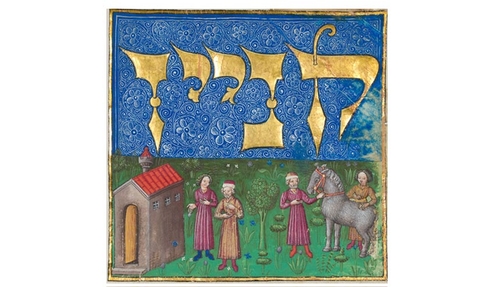 קניין